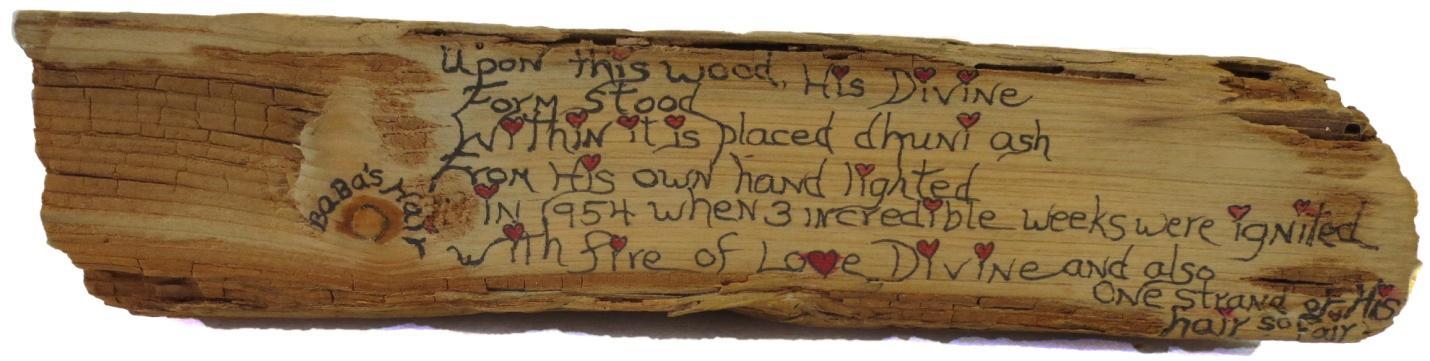 Upon this wood, His Divine
Form stood
Within it is placed dhuni ash
From His own hand lighted
in 1954 when 3 incredible weeks were ignited
with fire of Love Divine and also
one strand of His
hair so fair
BaBa's Hair